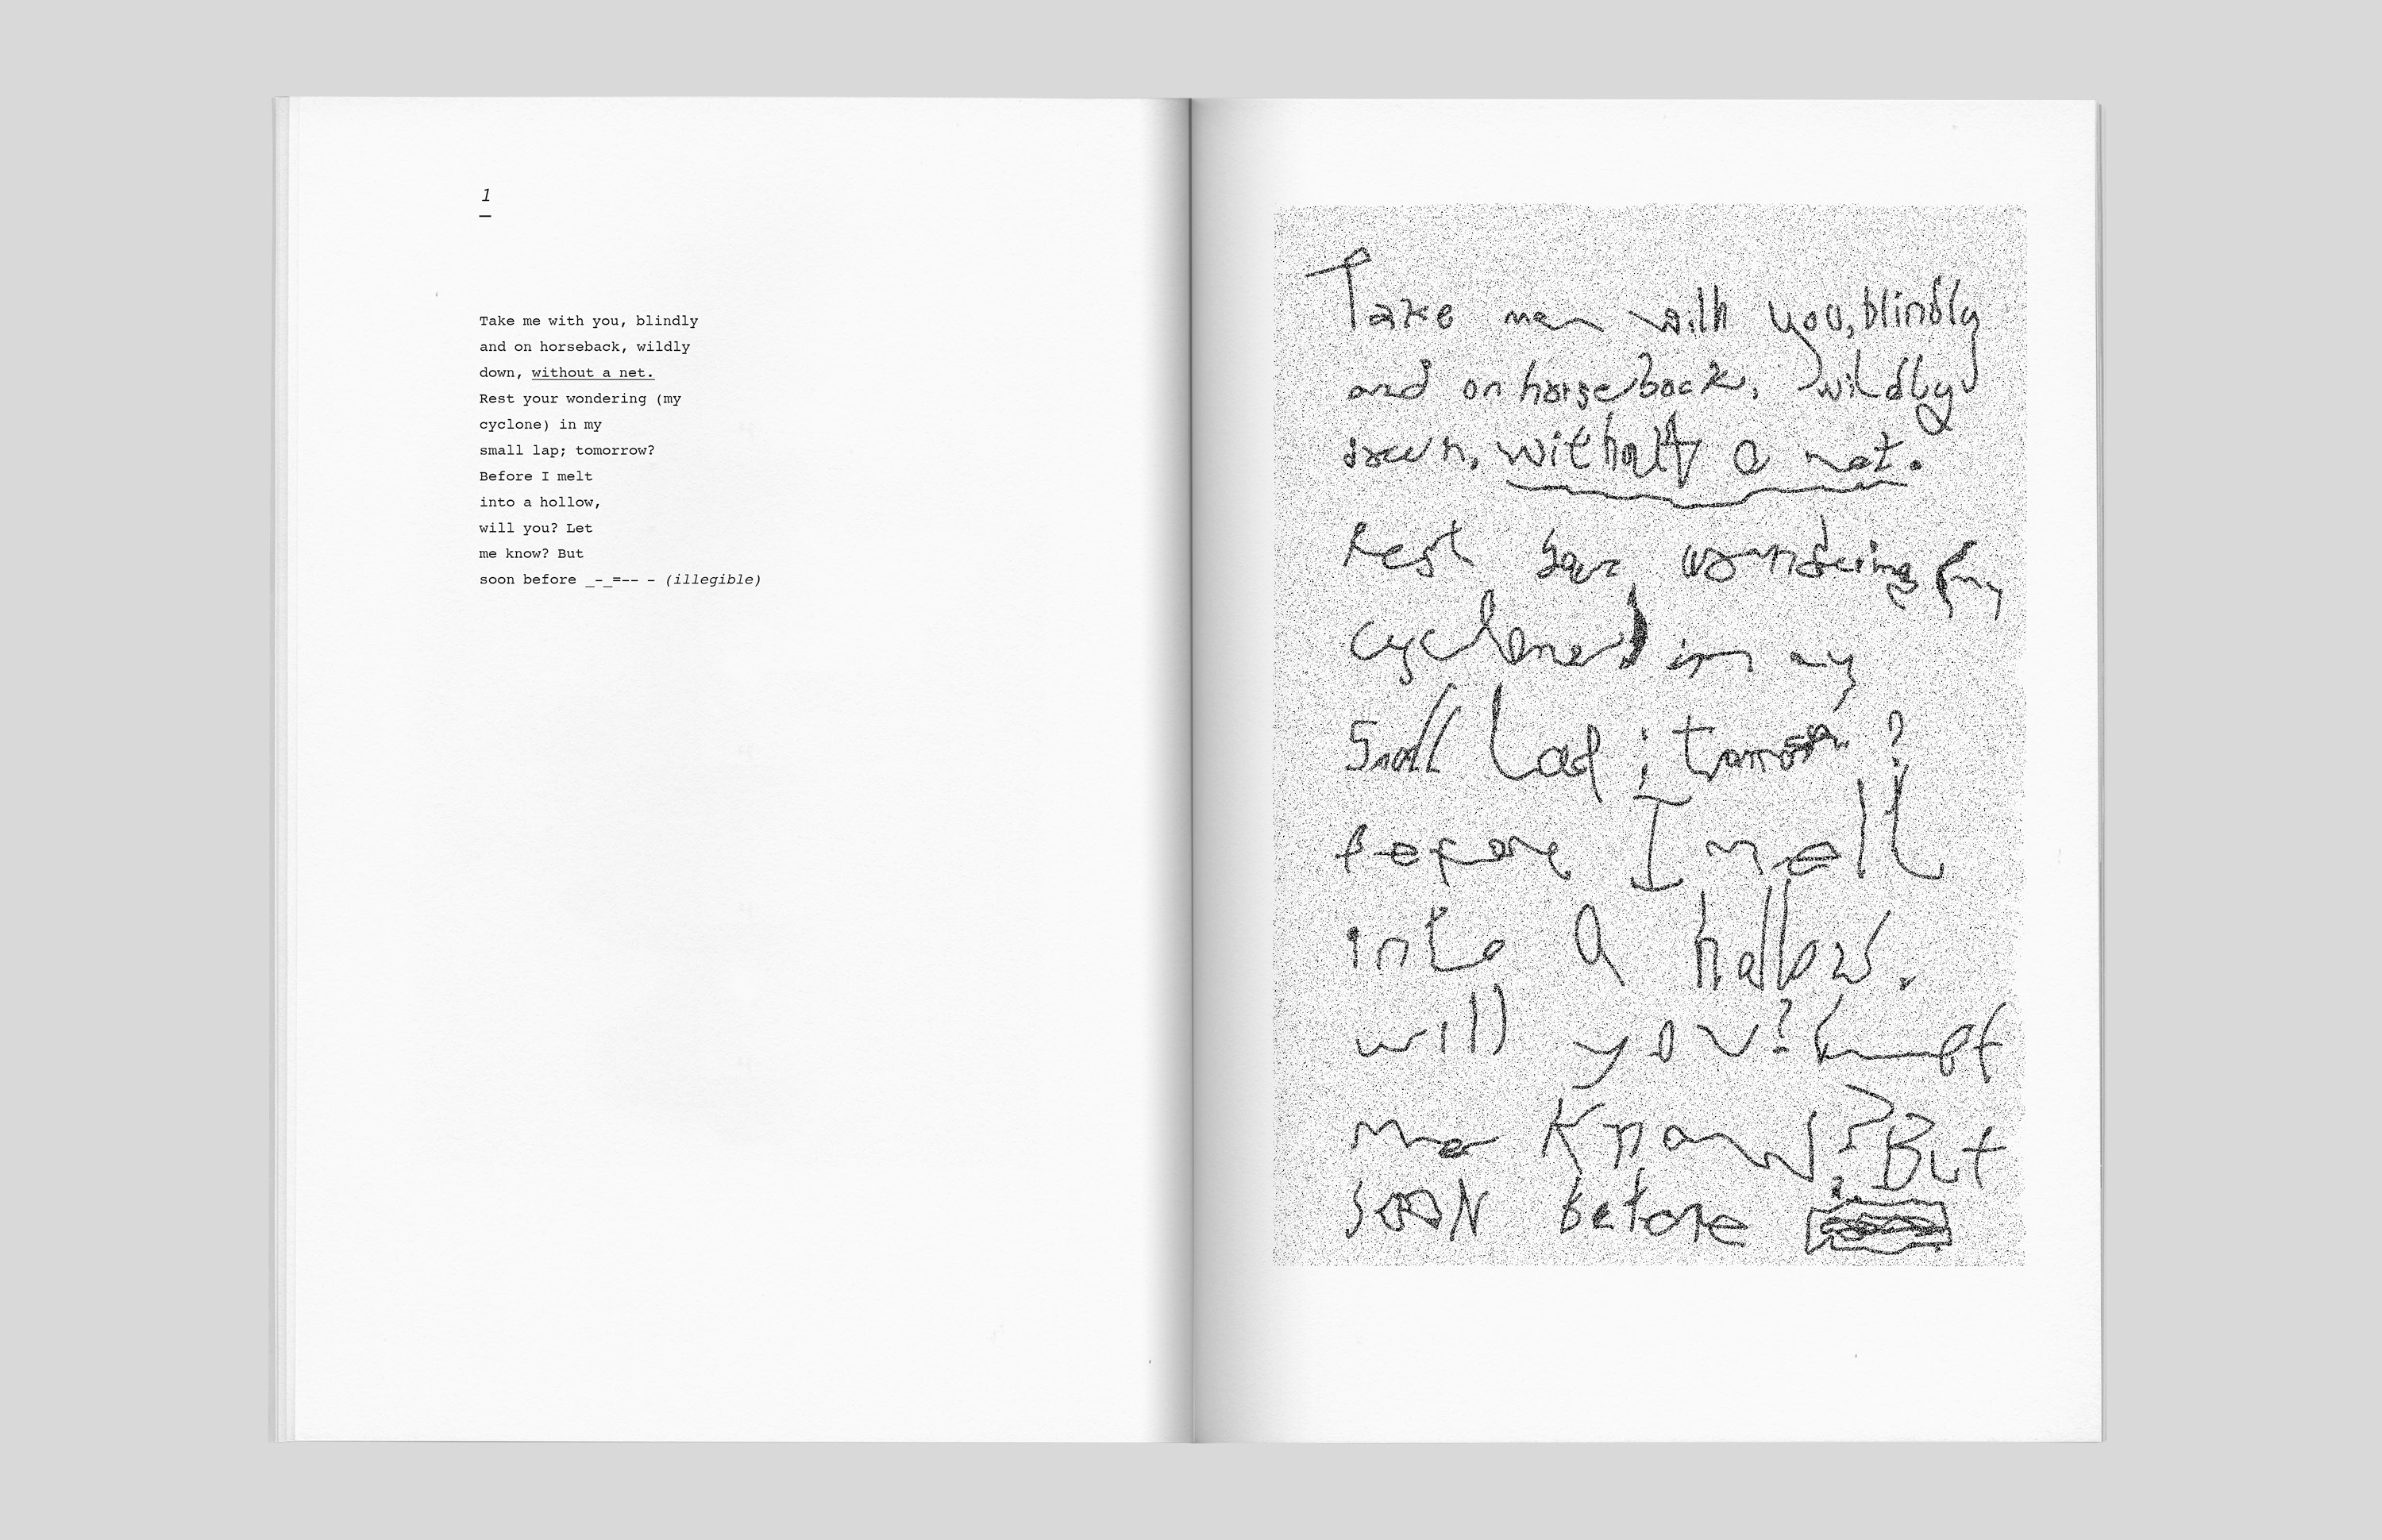 1
Take me with you, blindly
and on horseback, wildly
down, without a net.
Rest your wondering (my
cyclone) in my
small lap; tomorrow?
Before I melt
into a hollow,
will you? Let
me know? But
soon before _-_=-- - (illegible)
Take me with you, blindly
and on horseback, wildly
down, without a net.
Rest your wondering (my
cyclone) in my
Small lap; tomorrow?
before I melt
into a hollow.
will you? Let
me Know? But
SOON before